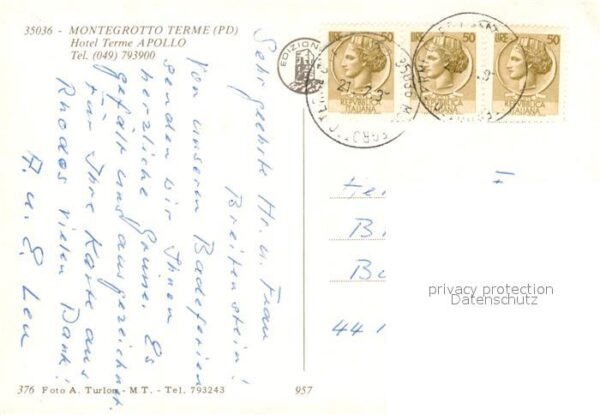 35036 - MONTEGROTTO TERME (PD)
Hotel Terme APOLLO
Tel. (049) 793900
EDIZIONE
LIRE 50
REPVBBLICA
ITALIANA
LIRE 50
REPVBBLICA
ITALIANA
LIRE 50
REPVBBLICA
ITALIANA
35036 MONTEGROTTO TERME
Sehr geehrte Hr. u. Frau
Breitenstein!
Von unseren Badeferien
senden wir Ihnen
herzliche Grüsse. Es
gefällt uns ausgezeichnet.
Für Ihre Karte aus
Rhodos vielen Dank!
A. u. E. Leu
44
privacy protection
Datenschutz
376 Foto A. Turlon - M.T. - Tel. 793243
957